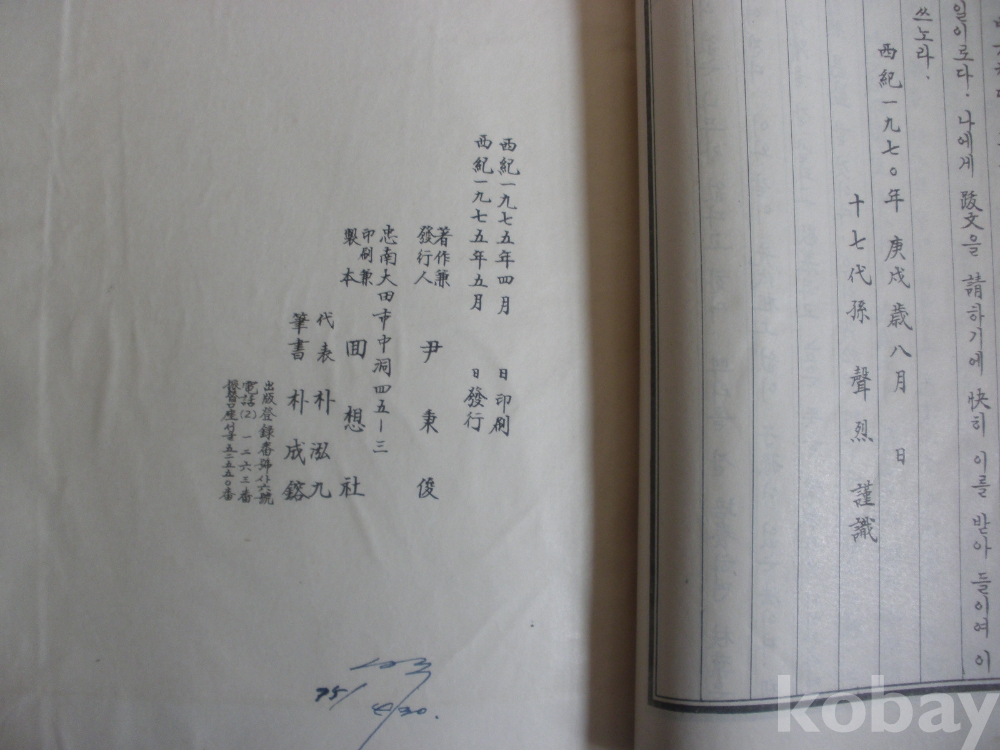 일이로다. 나에게 跋文을 請하기에 快히 이를 받아 들이여 이
쓰노라.
西紀一九七○年 庚戌歲八月 日
十七代孫 聲烈 謹識
西紀一九七五年四月 日 印刷
西紀一九七五年五月 日 發行
著作兼
發行人 尹秉俊
忠南大田市中洞四五-三
印刷兼
製本 回想社
代表 朴泓九
筆書 朴成鎔
出版登錄番號사六號
電話(2) 一二六三番
75/
4/30.
kobay